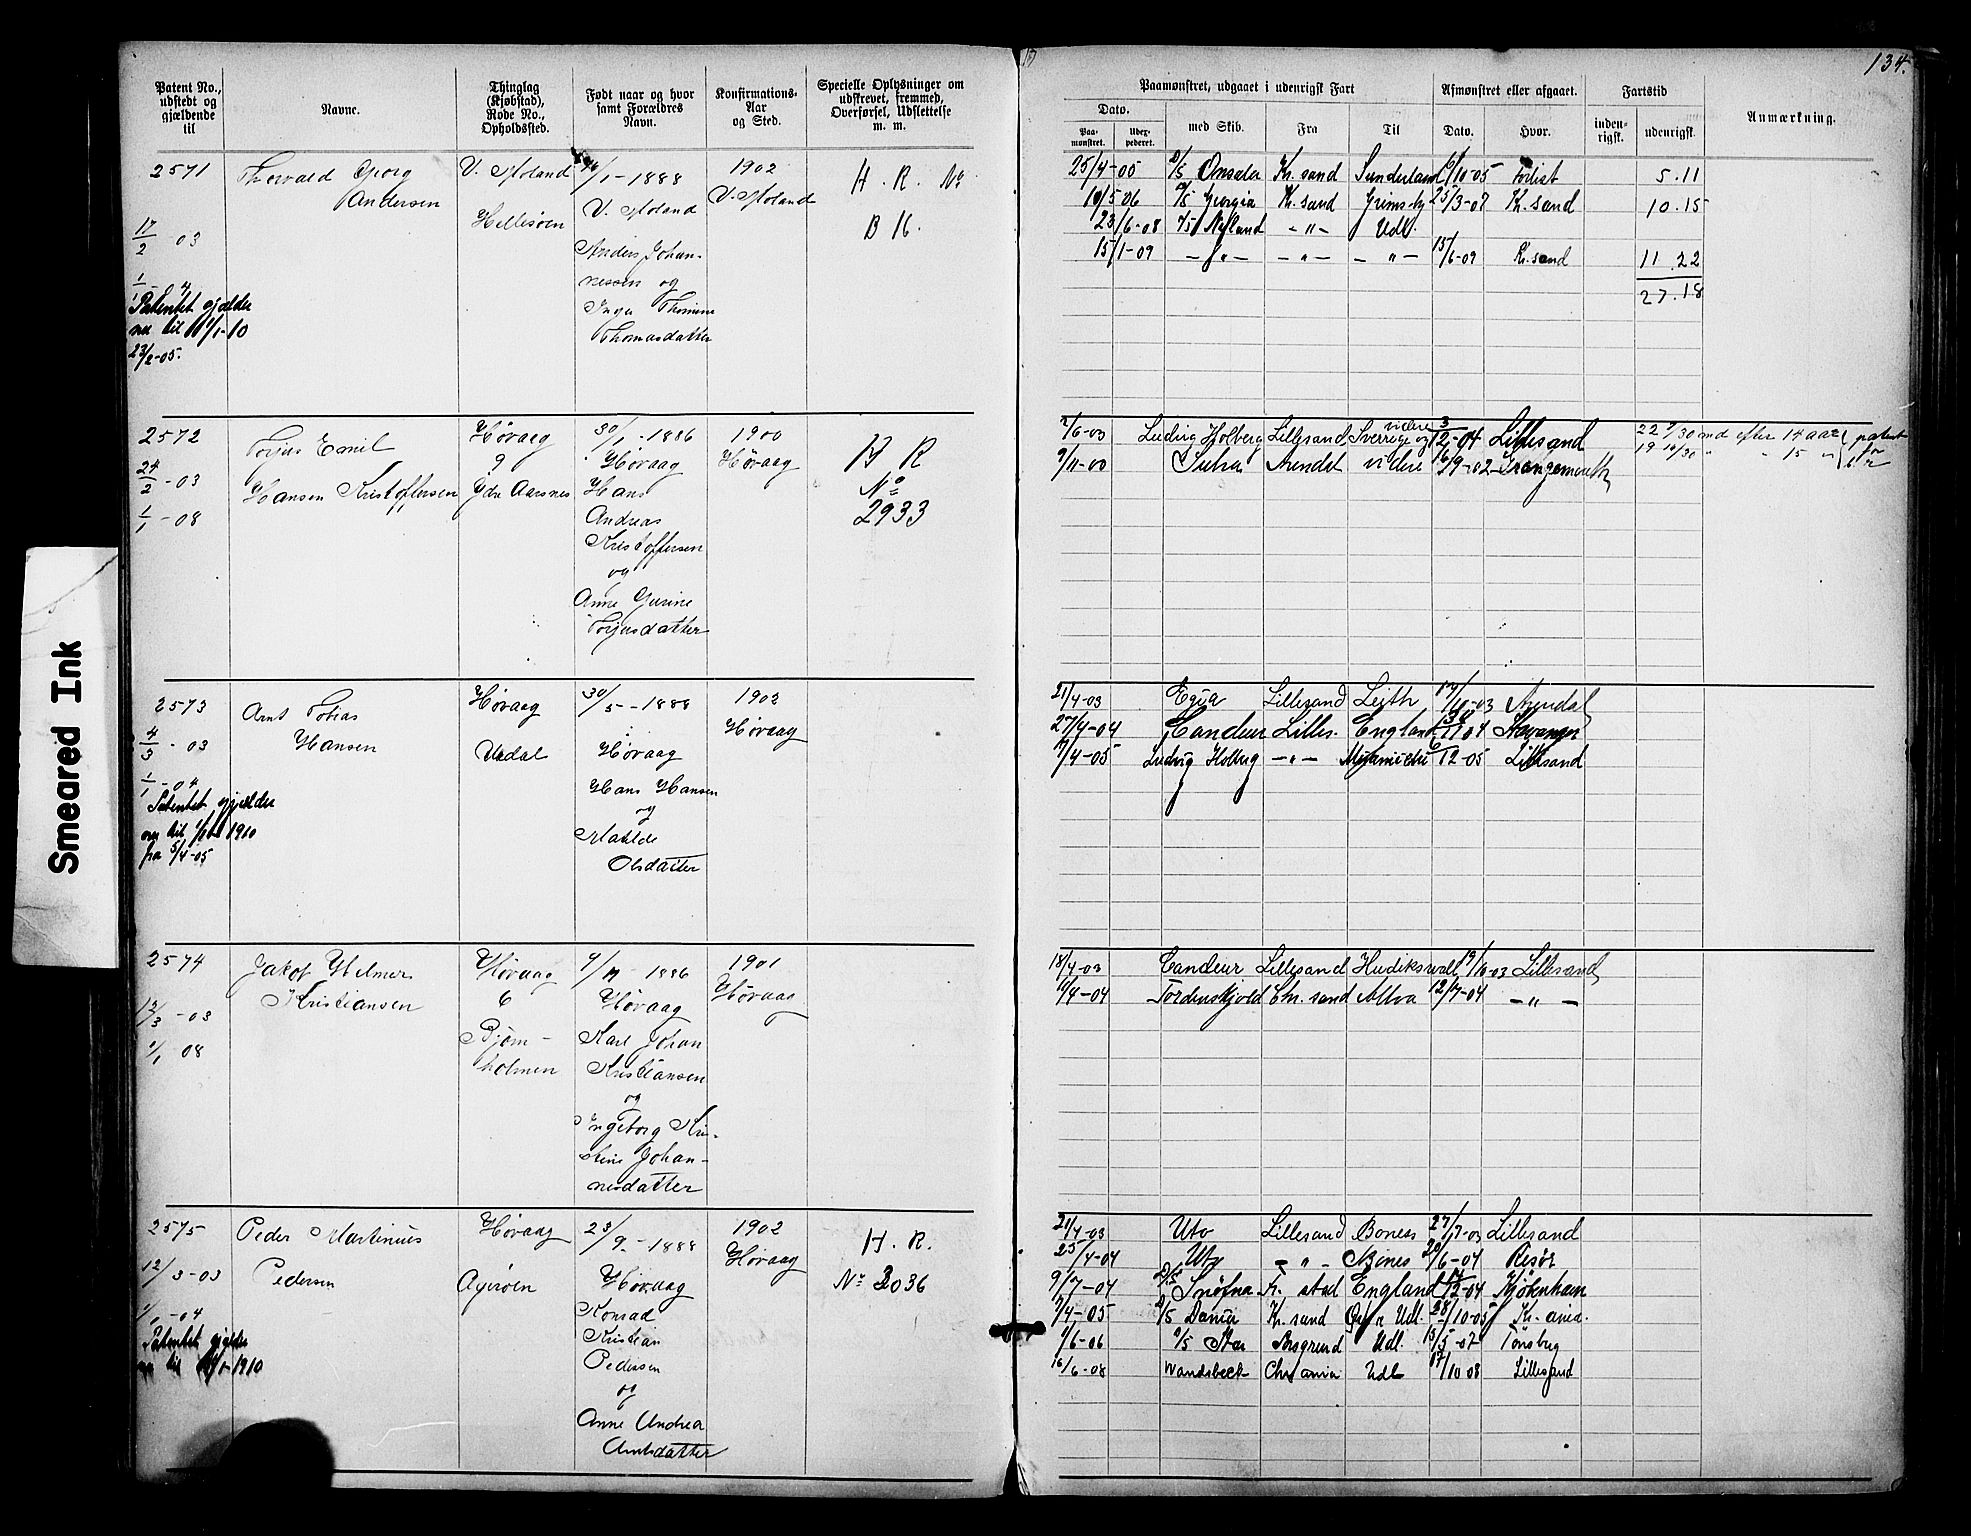 134.
Smeared Ink
Patent No., udstedt og gjældende til
Navne.
Thinglag (Kjøbstad), Rode No., Opholdssted.
Født naar og hvor samt Forældres Navn.
Konfirmations-Aar og Sted.
Specielle Oplysninger om udskrevet, fremmed, Overførsel, Udslettelse m. m.
Paamønstret, udgaaet i udenrigsk Fart
Afmønstret eller afgaaet.
Fartstid
Anmærkning.
Dato.
Paamønstret.
Uderpederet.
med Skib.
Fra
Til
Dato.
Hvor.
indenrigsk.
udenrigsk.
2571
17/2 03
Patentet gjælder
nu til 1/1-10
23/2-05.
Thorvald Georg
Andersen
V. Moland
Hellesøen
1-1888
V. Moland
Anders Johan-
nessen og
Inga Thomine
Thomasdatter
1902
V. Moland
H. R. No
B 16.
25/4-05 Onsala Kr.sand Sunderland /10-05 Forlist 5.11
10/5 06 Georgia Kr.sand Grimsby 25/3-07 Kr.sand 10.15
23/6-08 Nyland -"- Udl.
15/1-09 -"- -"- -"- 15/6-09 Kr.sand 11.22
27.18
2572
24/2-03
1/1-08
Torjus Emil
Hansen Kristoffersen
Høvaag
9
Ydre Aarsnes
30/1-1886
Høvaag
Hans
Andreas
Kristoffersen
og
Anne Gurine
Torjusdatter
1900
Høvaag
H R
No
2933
2/6-03 Ludvig Holberg Lillesand Sverrige og videre 3/12-04 Lillesand
9/11-00 Sutra Arendal videre /9-02 Grangemouth
22 9/30 md efter 14 aar patent
19 10/30 " - 15 " før
2573
4/3-03
1/1-04
Patentet gjælder
nu til 1/1 1910
fra 5/4-05
Arnt Tobias
Hansen
Høvaag
Uedal
30/5-1888
Høvaag
Hans Hansen
og
Matilde
Olsdatter
1902
Høvaag
21/4-03 Egua Lillesand Leith 17/10-03 Arendal
27/4-04 Candeur Lilles. England 04 Stavanger
/4-05 Ludvig Holberg -"- Miramichi /12-05 Lillesand
2574
12/3-03
1/1 08
Jakob Hilmer
Kristiansen
Høvaag
6
Bjørn-
holmen
1886
Høvaag
Karl Johan
Kristiansen
og
Ingeborg Kri-
stine Johan-
nesdatter
1901
Høvaag
18/4-03 Candeur Lillesand Hudikswall 19/10-03 Lillesand
/4-04 Tordenskjold Chr.sand Alloa 12/7-04 -"-
2575
12/3-03
1/1-04
Patentet gjælder
nu til 1/1-1910
Peder Martinius
Pedersen
Høvaag
Agerøen
23/9-1888
Høvaag
Konrad
Kristian
Pedersen
og
Anne Andrea
Arntsdatter
1902
Høvaag
H. R.
No 3036
21/4-03 Uto Lillesand Boness 27/7-03 Lillesand
25/4-04 Uto -"- Bones 20/6-04 Risør
9/7-04 Snöfna Fr. stad England /12-04 Kjøbnhavn
/4-05 Dania Kr.sand Udl. 28/10-05 Kr.ania.
/6-06 Star Porsgrund Udl. 13/5-07 Tønsberg
16/6-08 Wandsbeck Chr ania Udl 17/10 08 Lillesand